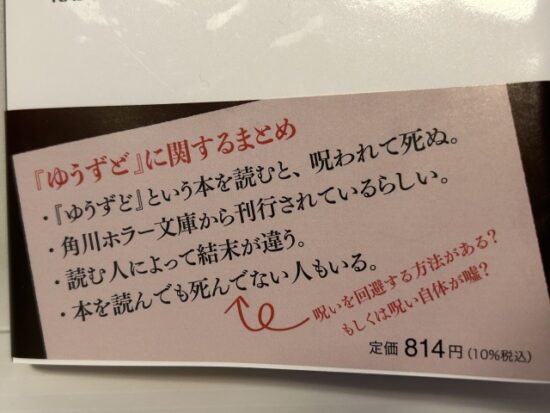 『ゆうずど』に関するまとめ
・『ゆうずど』という本を読むと、呪われて死ぬ。
・角川ホラー文庫から刊行されているらしい。
・読む人によって結末が違う。
・本を読んでも死んでない人もいる。
呪いを回避する方法がある？
もしくは呪い自体が嘘？
定価 814円（10%税込）